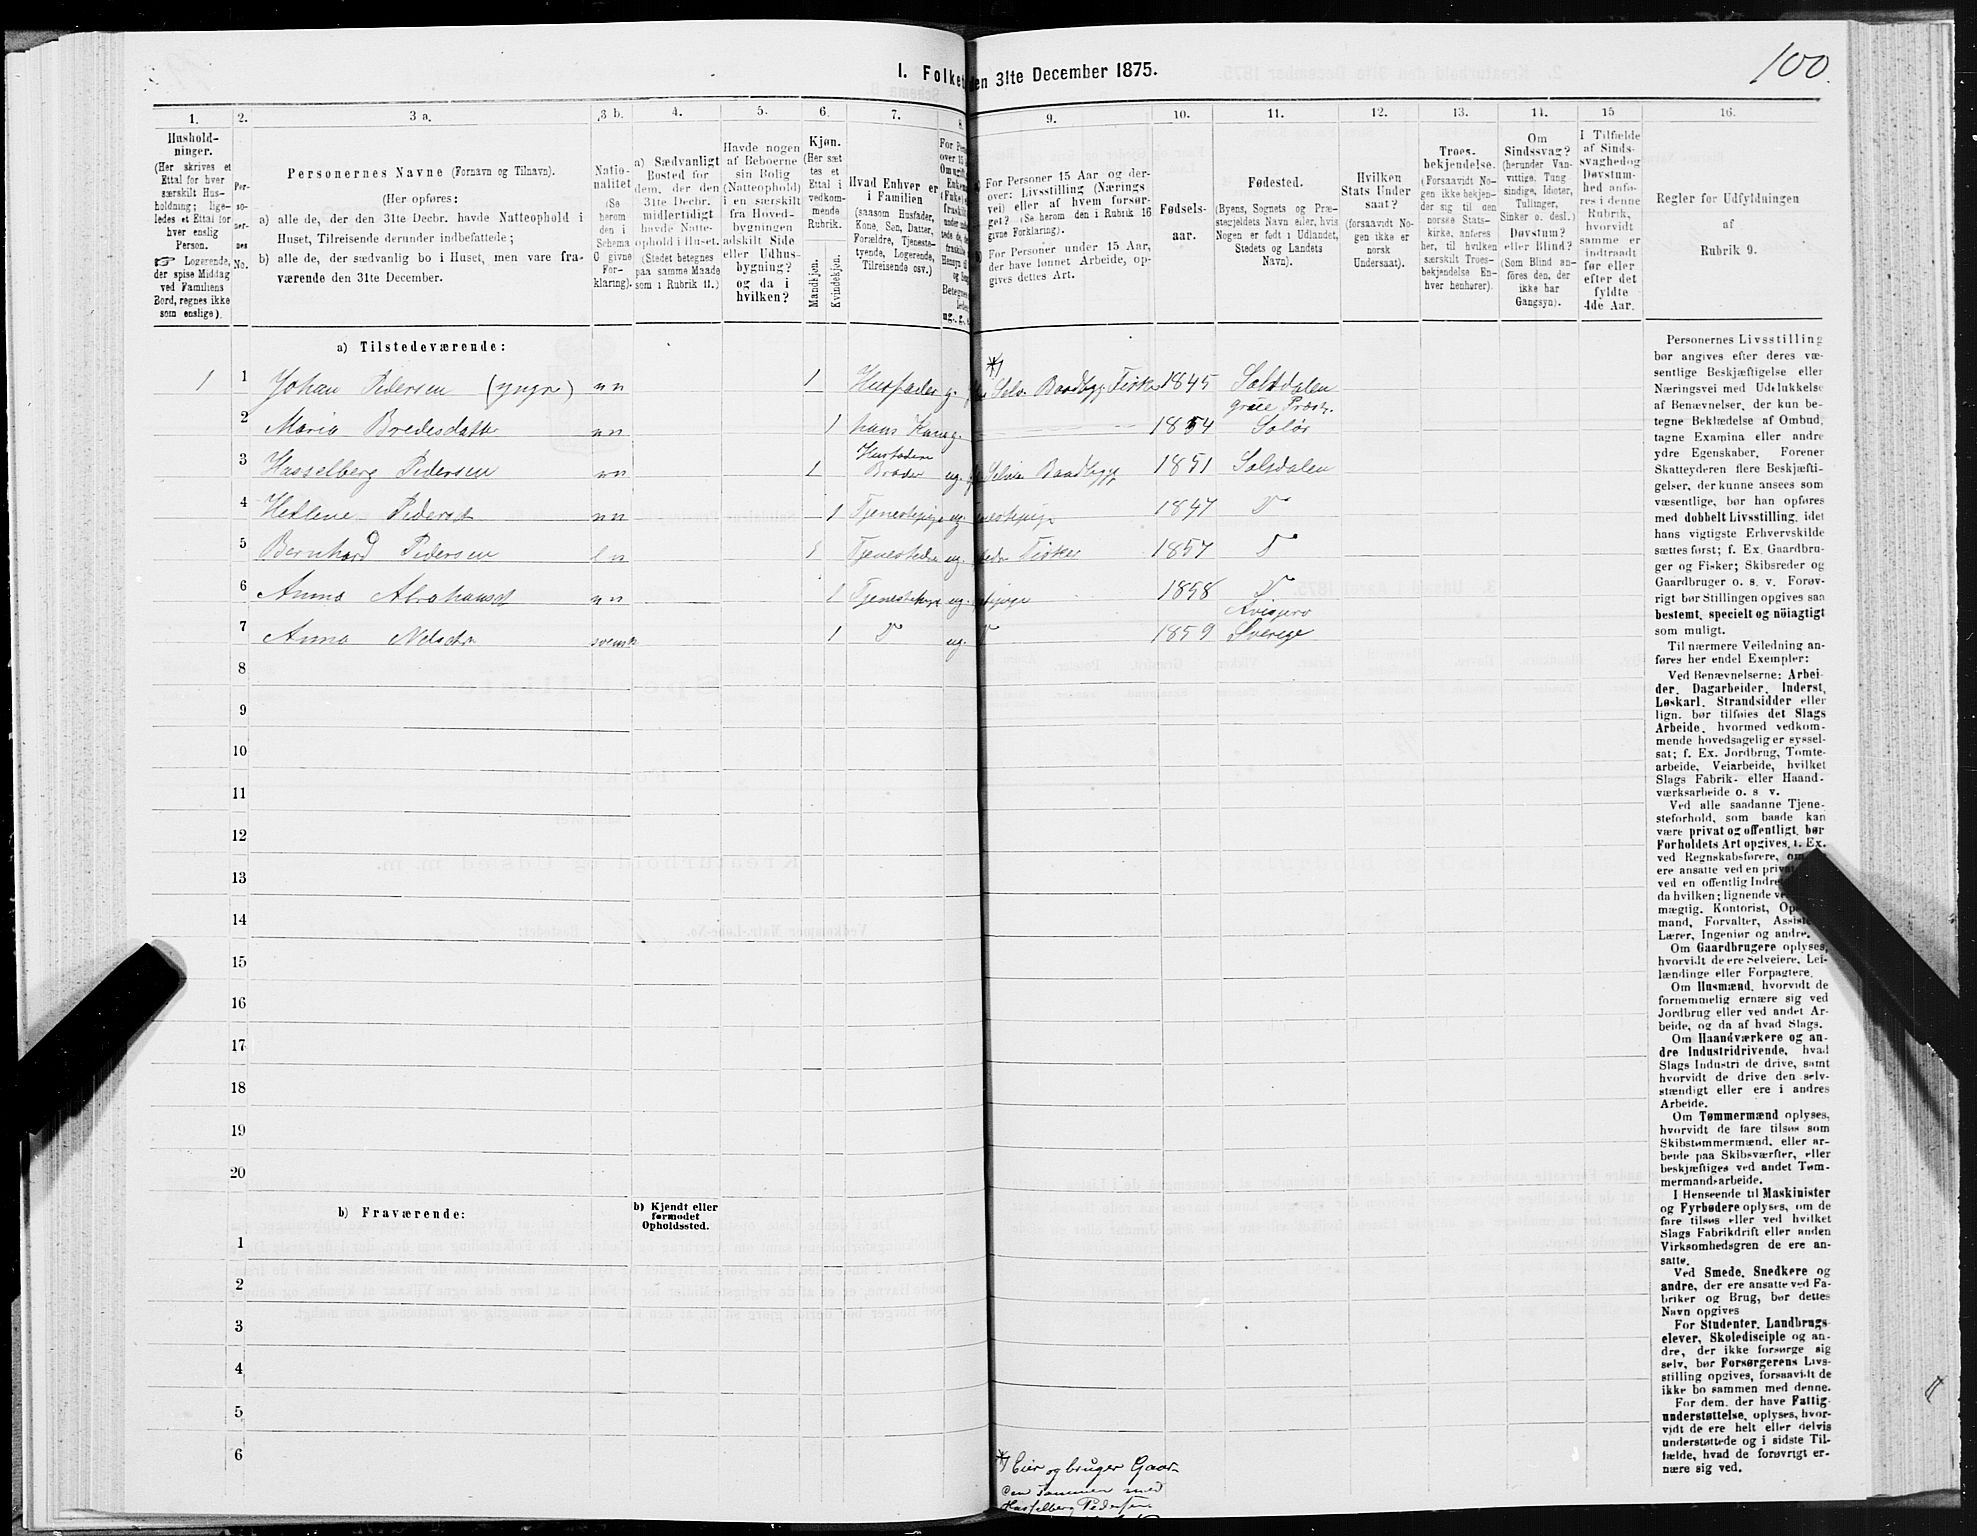 100
I. Folket den 31te December 1875.
1. 2. 3 a. 3 b. 4. 5. 6. 7. 8. 9. 10. 11. 12. 13. 14. 15 16.
Hushold-
ninger.
(Her skrives et
Ettal for hver
særskilt Hus-
holdning; lige-
ledes et Ettal for
hver enslig
Person.
☞ Logerende,
der spise Middag
ved Familiens
Bord, regnes ikke
som enslige).
Per-
so-
ner-
nes
No.
Personernes Navne (Fornavn og Tilnavn).
(Her opføres:
a) alle de, der den 31te Decbr. havde Natteophold i
Huset, Tilreisende derunder indbefattede;
b) alle de, der sædvanlig bo i Huset, men vare fra-
værende den 31te December.
Natio-
nalitet
(Se
herom
den i
Schema
C givne
For-
klaring).
a) Sædvanligt
Bosted for
dem, der den
31te Decbr.
midlertidigt
havde Natte-
ophold i Huset.
(Stedet betegnes
paa samme Maade
som i Rubrik 11.)
Havde nogen
af Beboerne
sin Bolig
(Natteophold)
i en særskilt
fra Hoved-
bygningen
adskilt Side
eller Udhus-
bygning?
og da i
hvilken?
Kjøn.
(Her sæt
tes et
Ettal i
vedkom-
mende
Rubrik.
Mandkjøn.
Kvindekjøn.
Hvad Enhver er
i Familien
(saasom Husfader,
Kone, Søn, Datter,
Forældre, Tjeneste-
tyende, Logerende,
Tilreisende osv.)
For Personer 15 Aar og der-
over: Livsstilling (Nærings
vei) eller af hvem forsør-
get? (Se herom den i Rubrik 16
givne Forklaring).
For Personer under 15 Aar,
der have lønnet Arbeide, op-
gives dettes Art.
Fødsels-
aar.
Fødested.
(Byens, Sognets og Præ-
stegjeldets Navn eller, hvis
Nogen er født i Udlandet,
Stedets og Landets
Navn).
Hvilken
Stats Under
saat?
(forsaavidt No-
gen ikke er
norsk
Undersaat).
Troes-
bekjendelse.
(Forsaavidt No-
gen ikke bekjen-
der sig til den
norske Stats-
kirke, anføres
her, til hvilken
særskilt Troes-
bekjendelse En-
hver henhører).
Om
Sindssvag?
(herunder Van-
vittige, Tung
sindige, Idioter,
Tullinger,
Sinker o. desl.)
Døvstum?
eller Blind?
(Som Blind an-
føres den, der
ikke har
Gangsyn).
I Tilfælde
af Sinds-
svaghedog
Døvstum-
hed anfø-
res i denne
Rubrik,
hvorvidt
samme er
indtraadt
før eller
efter det
fyldte
4de Aar.
Regler for Udfyldningen
af
Rubrik 9.
a) Tilstedeværende:
1 1 Johan Pedersen (yngr) nn 1 Husfader g. Selv. Baadbygg Fisker 1845 Saltdalen
2 Maria Bredesdatt nn 1 hans Kone g. 1854 Solør
3 Hasselberg Pedersen nn 1 Husfaders Broder ug. Baadbygg 1851 Saltdalen
4 Pedersd nn 1 Tjenestepige ug. 1847 D
5 Bernhard Pedersen 1 ug. Fisker 1857 D
6 Anna Abrahamsd nn 1 ug. 1858 D
7 Anna svensk 1 D ug. D 1859 Sverige
8
9
10
11
12
13
14
15
16
17
18
19
20
b) Fraværende:
b) Kjendt eller
formodet
Opholdssted.
1
2
3
4
5
6
*) Eier og bruger Gaar-
den sammen med
Hasselberg Pedersen
Personernes Livsstilling
bør angives efter deres væ-
sentlige Beskjæftigelse eller
Næringsvei med Udelukkelse
af Benævnelser, der kun be-
tegne Beklædelse af Ombud,
tagne Examina eller andre
ydre Egenskaber. Forener
Skatteyderen flere Beskjæfti-
gelser, der kunne ansees som
væsentlige, bør han opføres
med dobbelt Livsstilling, idet
hans vigtigste Erhvervskilde
sættes først; f. Ex. Gaardbru-
ger og Fisker; Skibsreder og
Gaardbruger o. s. v. Forøv-
rigt bør Stillingen opgives saa
bestemt, specielt og nöiagtigt
som muligt.
Til nærmere Veiledning an-
føres her endel Exempler:
Ved Benævnelserne: Arbei-
der, Dagarbeider, Inderst,
Løskarl, Strandsidder eller
lign. bør tilføies det Slags
Arbeide, hvormed vedkom-
mende hovedsagelig er syssel-
sat; f. Ex. Jordbrug, Tomte-
arbeide, Veiarbeide, hvilket
Slags Fabrik- eller Haand-
værksarbeide o. s. v.
Ved alle saadanne Tjene-
steforhold, som baade kan
være privat og offentligt, bør
Forholdets Art opgives, f. Ex.
ved Regnskabsførere, om
ere ansatte ved en privat
ved en offentlig
da hvilken; lignende ved
mægtig, Kontorist,
mand, Forvalter,
Lærer, Ingeniør og andre.
Om Gaardbrugere oplyses,
hvorvidt de ere Selveiere, Lei-
lændinge eller Forpagtere.
Om Husmænd, hvorvidt de
fornemmelig ernære sig ved
Jordbrug eller ved andet Ar-
beide, og da af hvad Slags.
Om Haandværkere og an-
dre Industridrivende, hvad
Slags Industri de drive, samt
hvorvidt de drive den selv-
stændigt eller ere i andres
Arbeide.
Om Tømmermænd oplyses,
hvorvidt de fare tilsøs som
Skibstømmermænd, eller ar-
beide paa Skibsværfter, eller
beskjæftiges ved andet Tøm-
mermandsarbeide.
I Henseende til Maskinister
og Fyrbødere oplyses, om de
fare tilsøs eller ved hvilket
Slags Fabrikdrift eller anden
Virksomhedsgren de ere an-
satte.
Ved Smede, Snedkere og
andre, der ere ansatte ved Fa-
briker og Brug, bør dettes
Navn opgives
For Studenter, Landbrugs-
elever, Skoledisciple og an-
dre, der ikke forsørge sig
selv, bør Forsørgerens Livs-
stilling opgives, forsaavidt de
ikke bo sammen med denne.
For dem, der have Fattig-
understøttelse, oplyses, hvor-
vidt de ere helt eller delvis
understøttede og i sidste Til-
fælde, hvad de forøvrigt er-
nære sig ved.